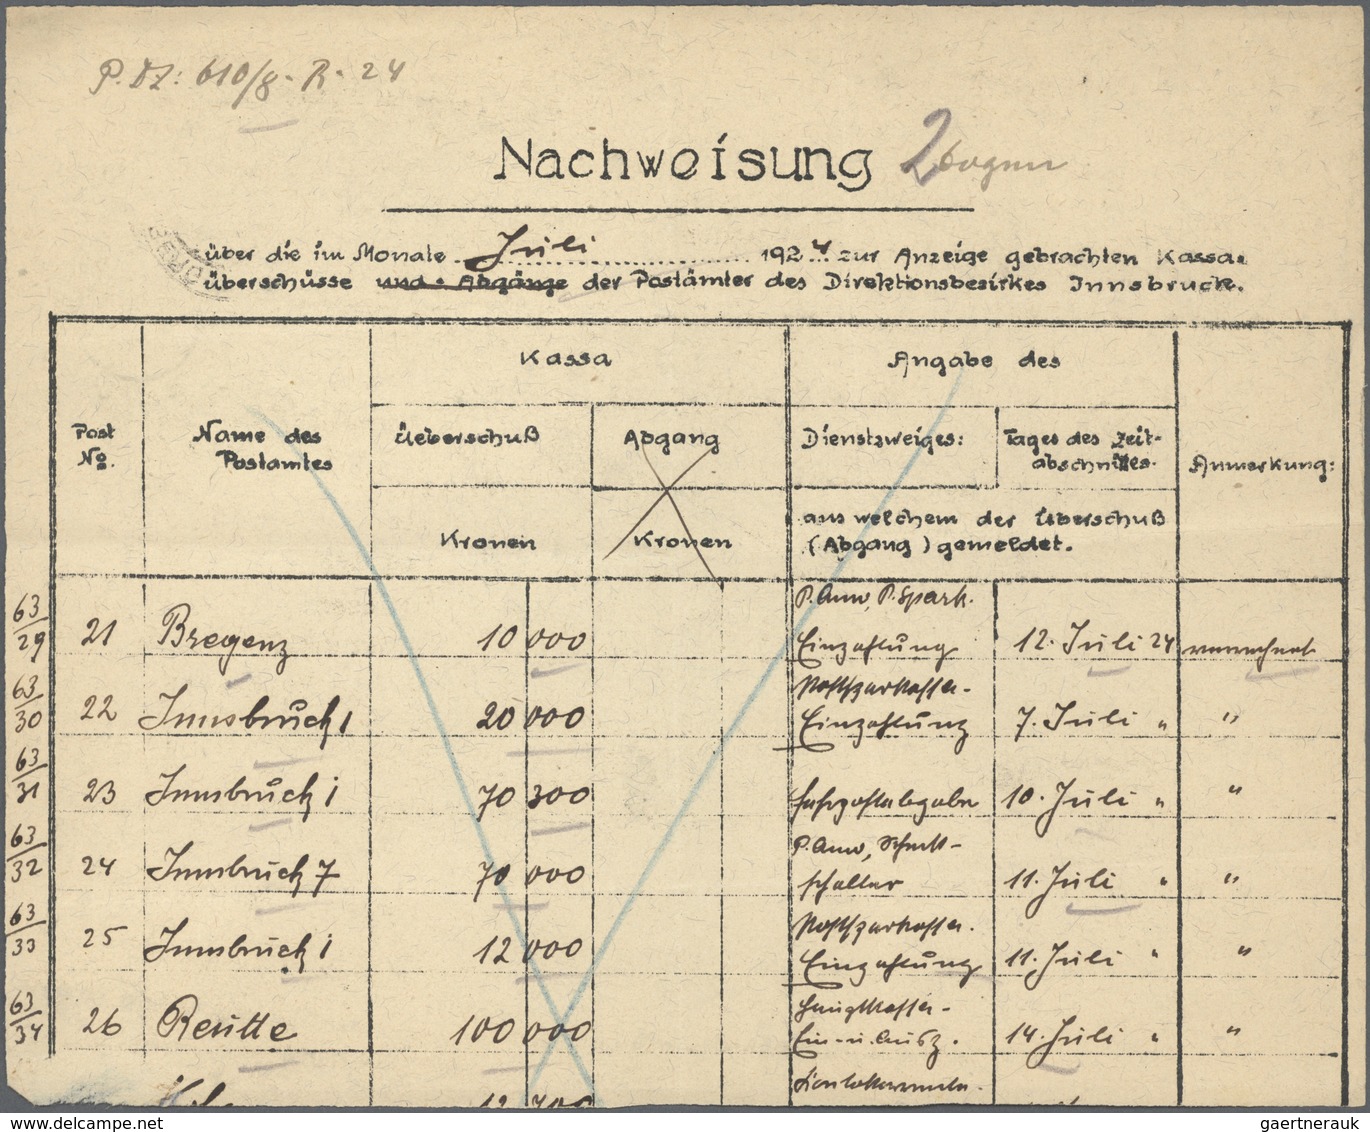 P. DZ: 610/8 - R - 24
Nachweisung 2 bogen
über die im Monate Juli 1924 zur Anzeige gebrachten Kassa=
überschüsse und Abgänge der Postämter des Direktionsbesirkes Innsbruck.
Kassa
Angabe des
Post No.
Name des Postamtes
Überschuß
Abgang
Dienstsweiges:
Tages des Zeit-
abschnittes.
Anmerkung:
Kronen
Kronen
aus welchem der Überschuß
(Abgang) gemeldet.
P. Anw, P. Spark.
63/29 21 Bregenz 10 000 Einzahlung 12. Juli 24 verrechnet
Postsparkassa-
63/30 22 Innsbruck 1 20 000 Einzahlung 7. Juli " "
63/31 23 Innsbruck 1 70 300 10. Juli " "
P. Anw, Scheck-
63/32 24 Innsbruck 7 70 000 schalter 11. Juli " "
Postsparkassa.
63/33 25 Innsbruck 1 12 000 Einzahlung 11. Juli " "
Hauptkassa-
63/34 26 Reutte 100 000 Ein- u. Ausz. 14. Juli " "
12 700
www.delcampe.net
gaertnerauk